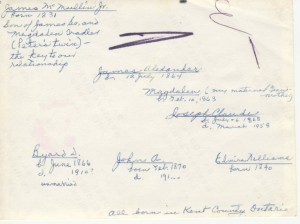 James McMullin Jr.
born 1831
Son of James Sr. and
Magdalen Tradler
(Peter's twin) -
the key to our
relationship
James Alexander
br. 10 July 1864
Magdalen (my maternal Grandmother)
br. Feb. 10, 1863
Joseph Claudes
b. July 1863
d. March 1959
Byard D.
b. June 1866
d. 1910?
unmarried
John A.
born Feb. 1870
d. 19
Edwin William
born 1870
All born in Kent County Ontario